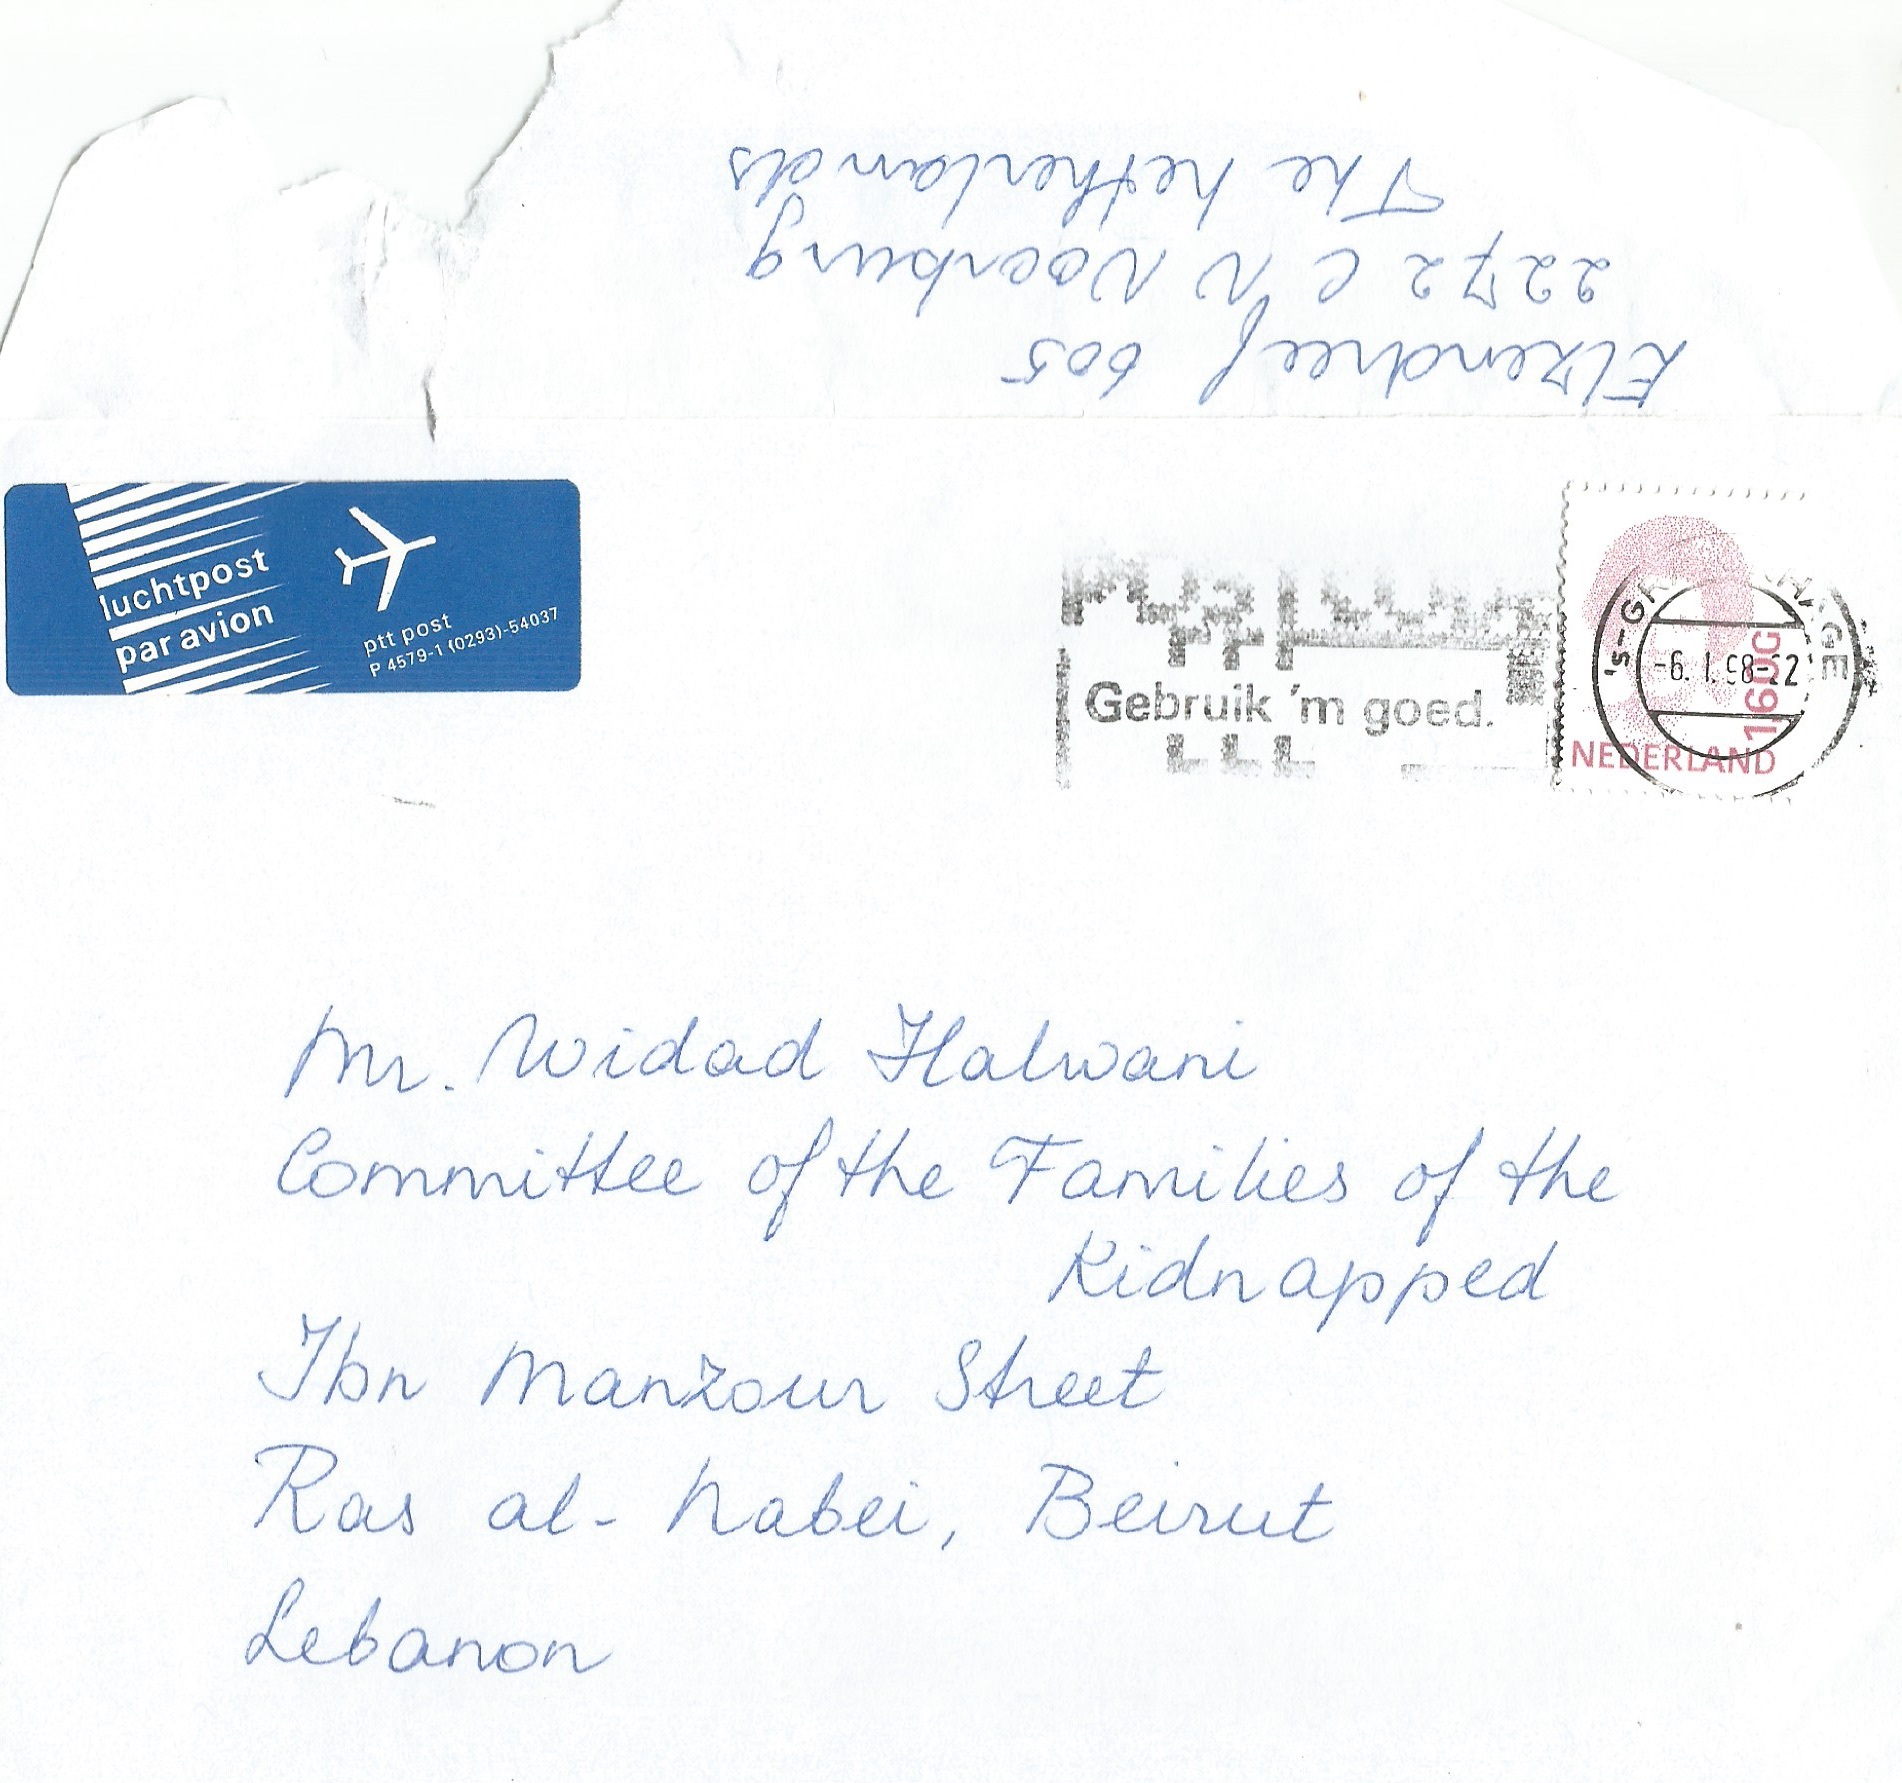 Elzendreef 605
2272 CN Voorburg
The netherlands
luchtpost
par avion
ptt post
P 4579-1 (0293)-54037
Gebruik 'm goed.
160G
NEDERLAND
-6.1.98-22
Mr. Widad Halwani
Committee of the Families of the
Kidnapped
Ibn Manzour Street
Ras al-Nabei, Beirut
Lebanon